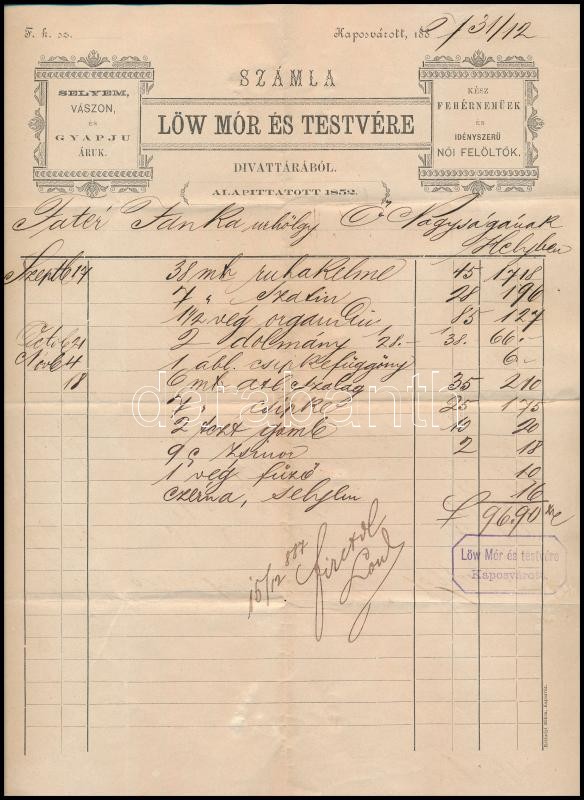 F. k. sz.
Kaposvárott, 188 /31/12
SZÁMLA
SELYEM,
VÁSZON,
ÉS
GYAPJU
ÁRUK.
LÖW MÓR ÉS TESTVÉRE
KÉSZ
FEHÉRNEMÜEK
ÉS
IDÉNYSZERÜ
NŐI FELÖLTŐK,
DIVATTÁRÁBÓL.
ALAPITTATOTT 1852.
Fanka urhölgy Ő Nagyságának
Helyben
Septb 17 38 mtr ruhakelme 45 1718
7 " Szatin 28 196
1 1/2 vég organtin 85 127
Octob 21 2 dolmány 28.- 38. 66.-
Novb 4 1 abl. csipkefüggöny 6.-
18 6 mtr atl. szalag 35 210
7 " csipke 25 175
2 tczt gomb 10 20
9 Zsinor 2 18
1 vég füző 10
czérna, selyem 16
f 96.90
15/12 887
Löw Mór és testvére
Kaposvárott.
darabanth